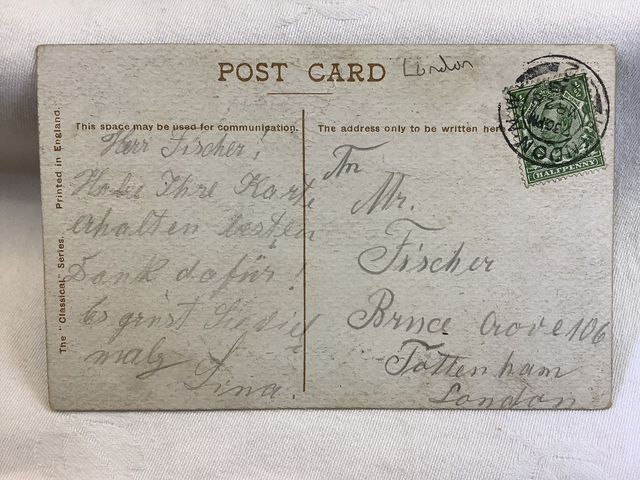 POST CARD London
The "Classical" Series. Printed in England.
This space may be used for communication.
Herr Fischer!
Habe Ihre Karte
erhalten besten
Dank dafür!
Es grüst Sie viel
malz
Lina.
The address only to be written here
An
Mr.
Fischer
Bruce Grove 106
Tottenham
London
LONDON
HALFPENNY